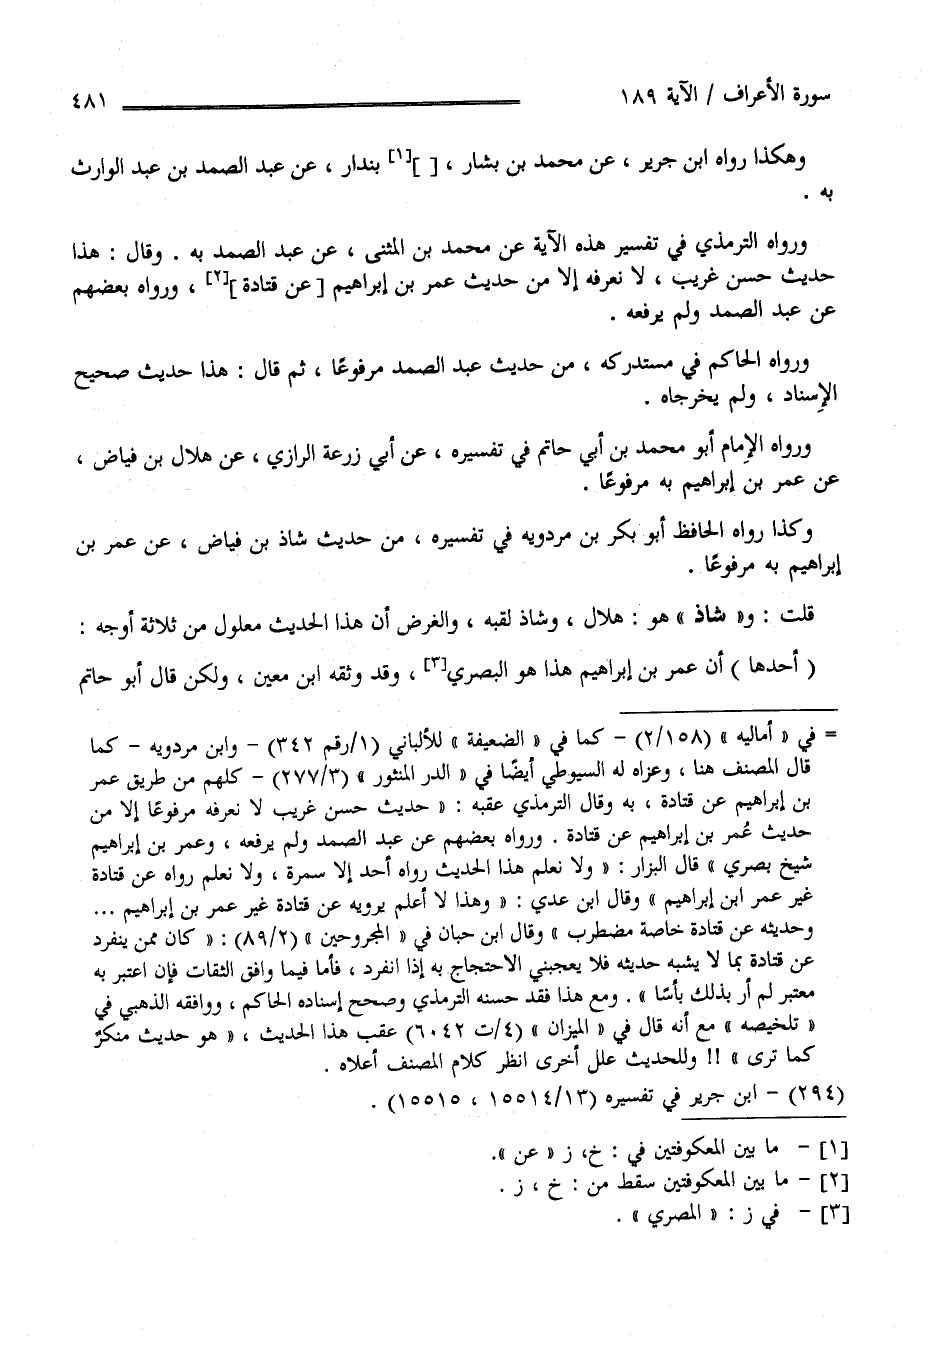 سورة الأعراف / الآية ١٨٩ ٤٨١
وهكذا رواه ابن جرير ، عن محمد بن بشار ، [ ][١] بندار ، عن عبد الصمد بن عبد الوارث
به .
ورواه الترمذي في تفسير هذه الآية عن محمد بن المثنى ، عن عبد الصمد به . وقال : هذا
حديث حسن غريب ، لا نعرفه إلا من حديث عمر بن إبراهيم [ عن قتادة ][٢] ، ورواه بعضهم
عن عبد الصمد ولم يرفعه .
ورواه الحاكم في مستدركه ، من حديث عبد الصمد مرفوعًا ، ثم قال : هذا حديث صحيح
الإِسناد ، ولم يخرجاه .
ورواه الإِمام أبو محمد بن أبي حاتم في تفسيره ، عن أبي زرعة الرازي ، عن هلال بن فياض ،
عن عمر بن إبراهيم به مرفوعًا .
وكذا رواه الحافظ أبو بكر بن مردويه في تفسيره ، من حديث شاذ بن فياض ، عن عمر بن
إبراهيم به مرفوعًا .
قلت : و« شاذ » هو : هلال ، وشاذ لقبه ، والغرض أن هذا الحديث معلول من ثلاثة أوجه :
( أحدها ) أن عمر بن إبراهيم هذا هو البصري[٣] ، وقد وثقه ابن معين ، ولكن قال أبو حاتم
= في « أماليه » (٢/١٥٨) - كما في « الضعيفة » للألباني (١/رقم ٣٤٢) - وابن مردويه - كما
قال المصنف هنا ، وعزاه له السيوطي أيضًا في « الدر المنثور » (٢٧٧/٣) - كلهم من طريق عمر
بن إبراهيم عن قتادة ، به وقال الترمذي عقبه : « حديث حسن غريب لا نعرفه مرفوعًا إلا من
حديث عُمر بن إبراهيم عن قتادة . ورواه بعضهم عن عبد الصمد ولم يرفعه ، وعمر بن إبراهيم
شيخ بصري » قال البزار : « ولا نعلم هذا الحديث رواه أحد إلا سمرة ، ولا نعلم رواه عن قتادة
غير عمر ابن إبراهيم » وقال ابن عدي : « وهذا لا أعلم يرويه عن قتادة غير عمر بن إبراهيم ...
وحديثه عن قتادة خاصة مضطرب » وقال ابن حبان في « المجروحين » (٨٩/٢) : « كان ممن ينفرد
عن قتادة بما لا يشبه حديثه فلا يعجبني الاحتجاج به إذا انفرد ، فأما فيما وافق الثقات فإن اعتبر به
معتبر لم أر بذلك بأسًا » . ومع هذا فقد حسنه الترمذي وصحح إسناده الحاكم ، ووافقه الذهبي في
« تلخيصه » مع أنه قال في « الميزان » (٤/ت ٦٠٤٢) عقب هذا الحديث ، « هو حديث منكرٌ
كما ترى » !! وللحديث علل أخرى انظر كلام المصنف أعلاه .
(٢٩٤) - ابن جرير في تفسيره (١٥٥١٤/١٣ ، ١٥٥١٥) .
[١] - ما بين المعكوفتين في : خ، ز « عن ».
[٢] - ما بين المعكوفتين سقط من : خ ، ز .
[٣] - في ز : « المصري » .